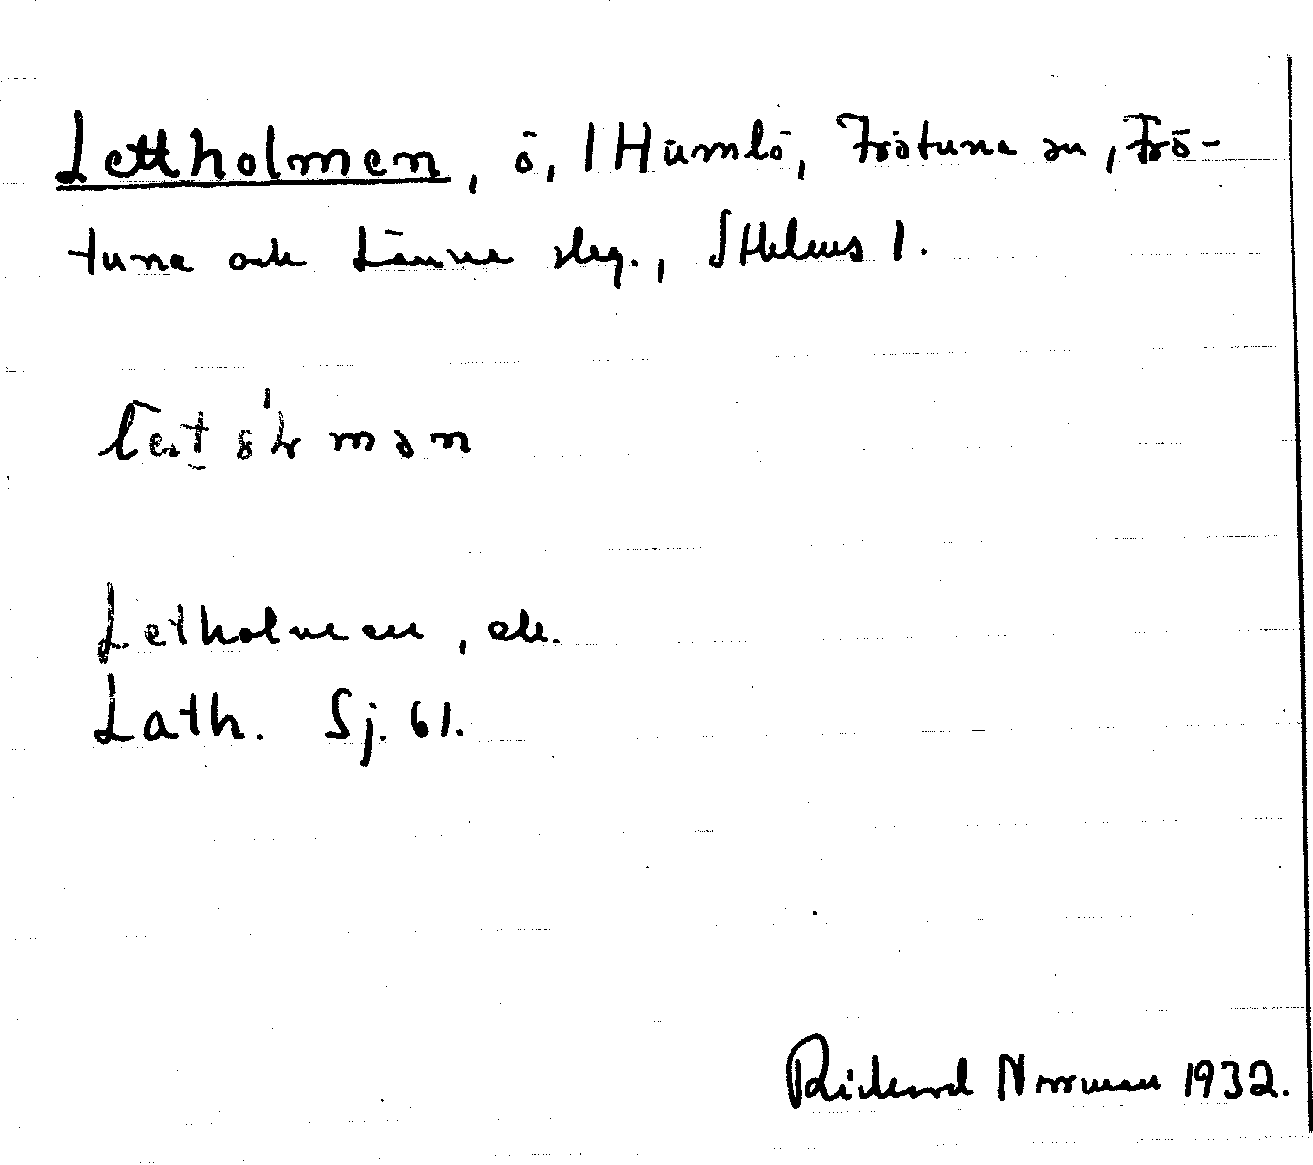 Lettholmen, ö, 1 Humlö, Frötuna sn, Frö-
tuna och Länna slg., Sthlms l.
Letholmen, ek.
Lath. Sj. 61.
Rickard Norrman 1932.